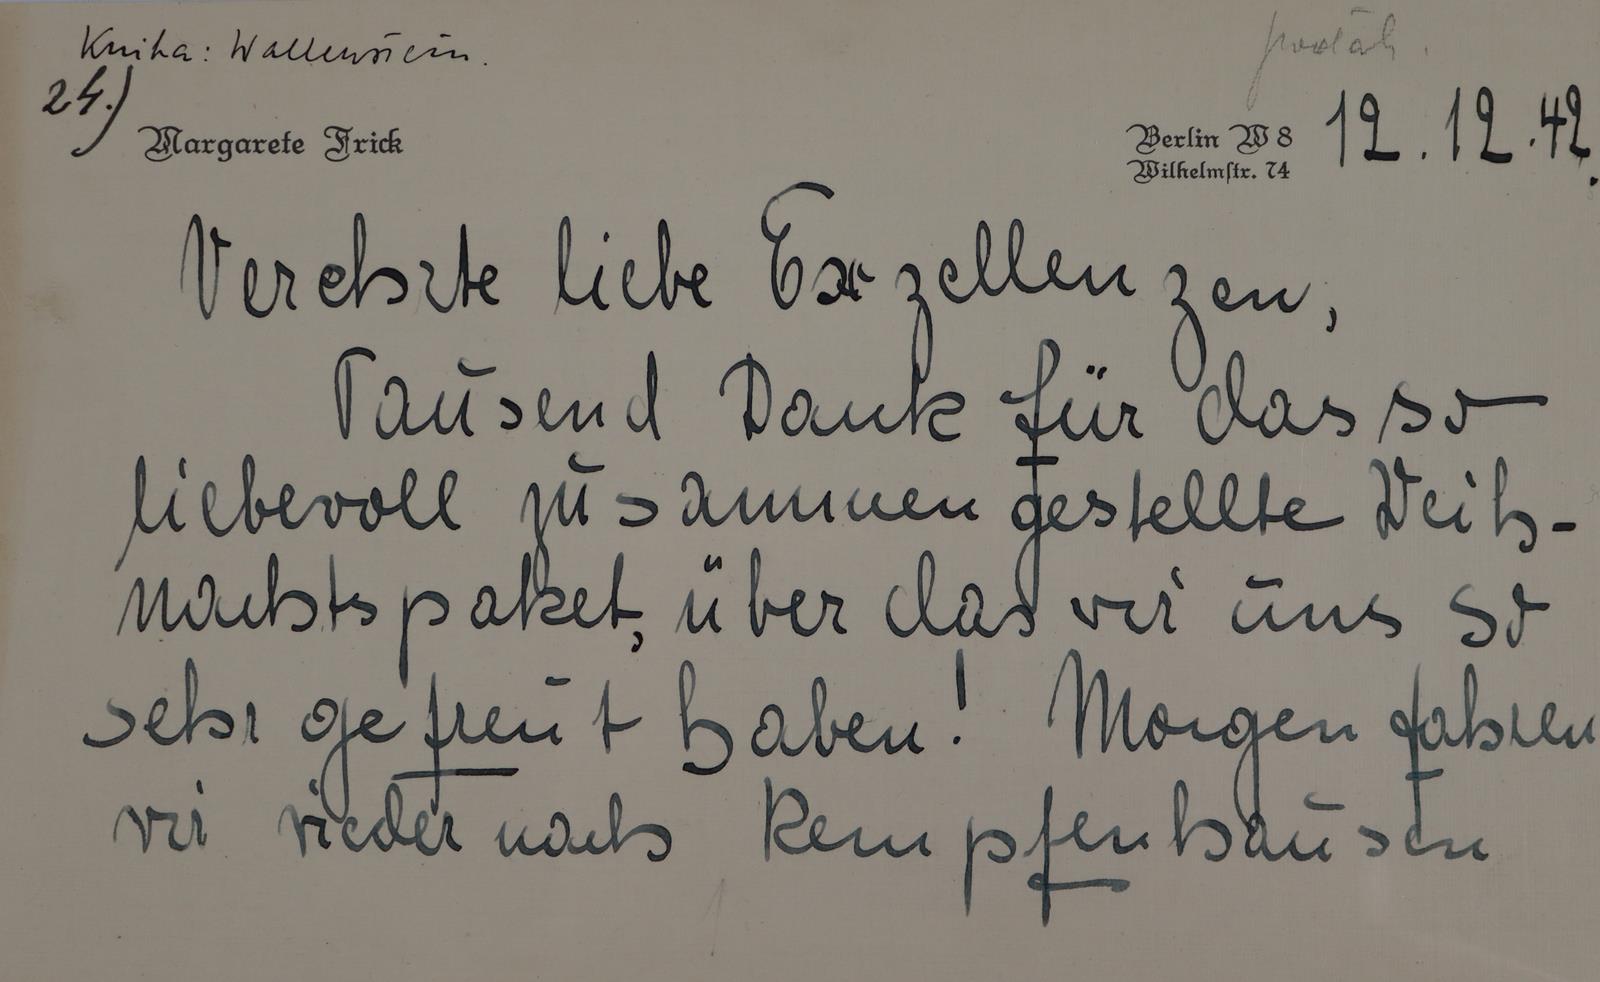 Kniha: Wallenstein.
24.)
Margarete Frick
Berlin W 8
Wilhelmstr. 74
12.12.42.
Verehrte liebe Exzellenzen,
Tausend Dank für das so
liebevoll zusammengestellte Weih-
nachtspaket, über das wir uns so
sehr gefreut haben! Morgen fahren
wir wieder nach Kempfenhausen